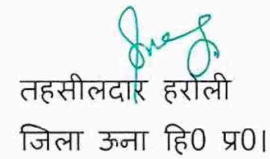 तहसीलदार हरोली
जिला ऊना हि0 प्र0।